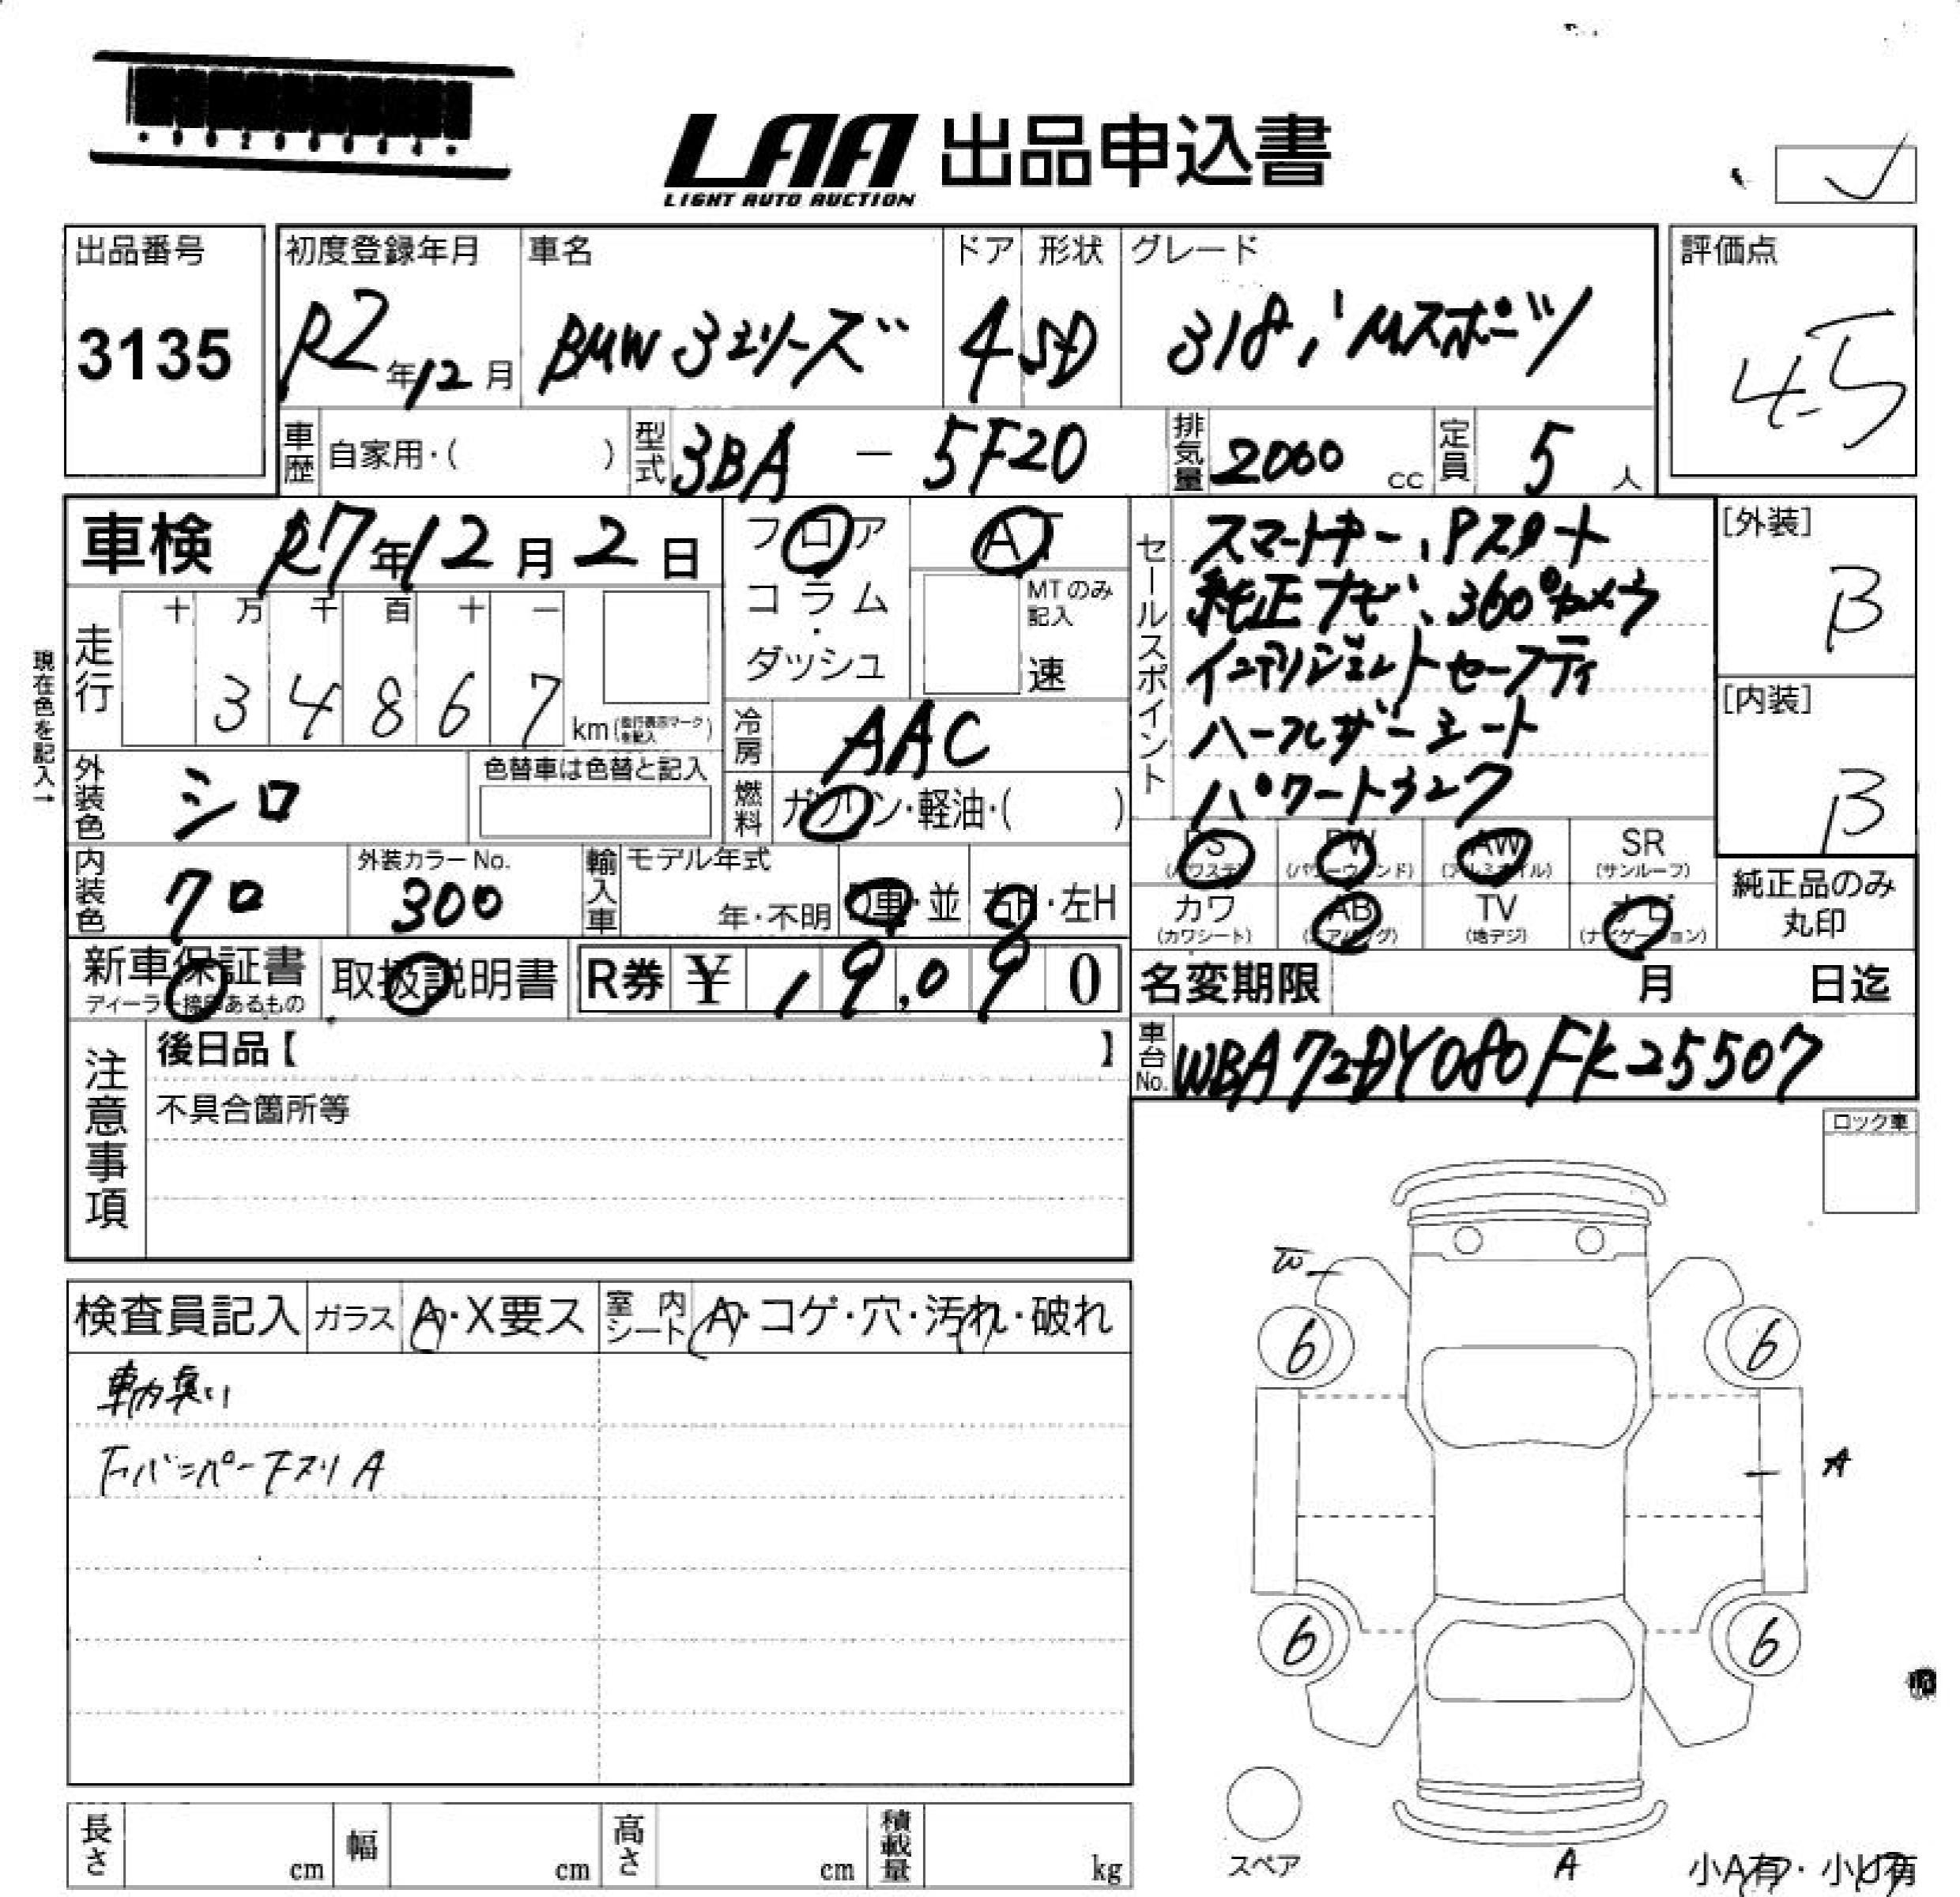 LAA 出品申込書
LIGHT AUTO AUCTION
出品番号
3135
初度登録年月
R2年12月
車名
BMW 3シリーズ
ドア
4
形状
SD
グレード
318i Mスポーツ
評価点
4.5
車歴
自家用・( )
型式
3BA - 5F20
排気量
2000 cc
定員
5 人
車検 R7年12月2日
フロア
コラム
・
ダッシュ
AT
MTのみ
記入
速
セールスポイント
スマートキー、Pスタート
純正ナビ、360°カメラ
インテリジェントセーフティ
ハーフレザーシート
パワートランク
[外装]
B
[内装]
B
現在色を記入→
走行
十 万 千 百 十 一
3 4 8 6 7
km
冷房
AAC
外装色
シロ
色替車は色替と記入
燃料
ガソリン・軽油・( )
PS PW AW SR
(パワステ) (パワーウィンド) (アルミホイル) (サンルーフ)
カワ AB TV ナビ
(カワシート) (エアバッグ) (地デジ) (ナビゲーション)
純正品のみ
丸印
内装色
クロ
外装カラーNo.
300
輸入車
モデル年式
年・不明
D車・並
右H・左H
新車保証書
ディーラー捺印あるもの
取扱説明書
R券 ¥ 19,090
名変期限 月 日迄
車台No.
WBA72DY080FK25507
注意事項
後日品【 】
不具合箇所等
ロック車
検査員記入
ガラス
A・X要ス
室内シート
A・コゲ・穴・汚れ・破れ
車内臭い
Fバンパー下スリA
W
6 6
A
6 6
スペア
A
小A有・小U有
長さ cm
幅 cm
高さ cm
積載量 kg